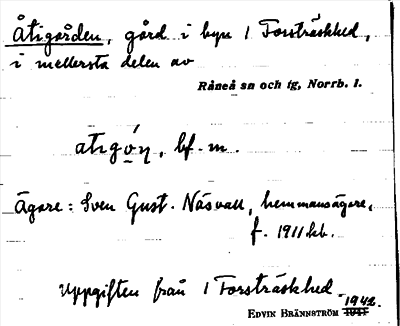 Åtigården, gård i byn 1 Forsträskhed,
i mellersta delen av
Råneå sn och tg, Norrb. l.
bf. m.
Ägare: Sven Gust. Näsvall, hemmansägare,
f. 1911 hb.
Uppgiften från 1 Forsträskhed.
1942.
EDVIN BRÄNNSTRÖM 1941